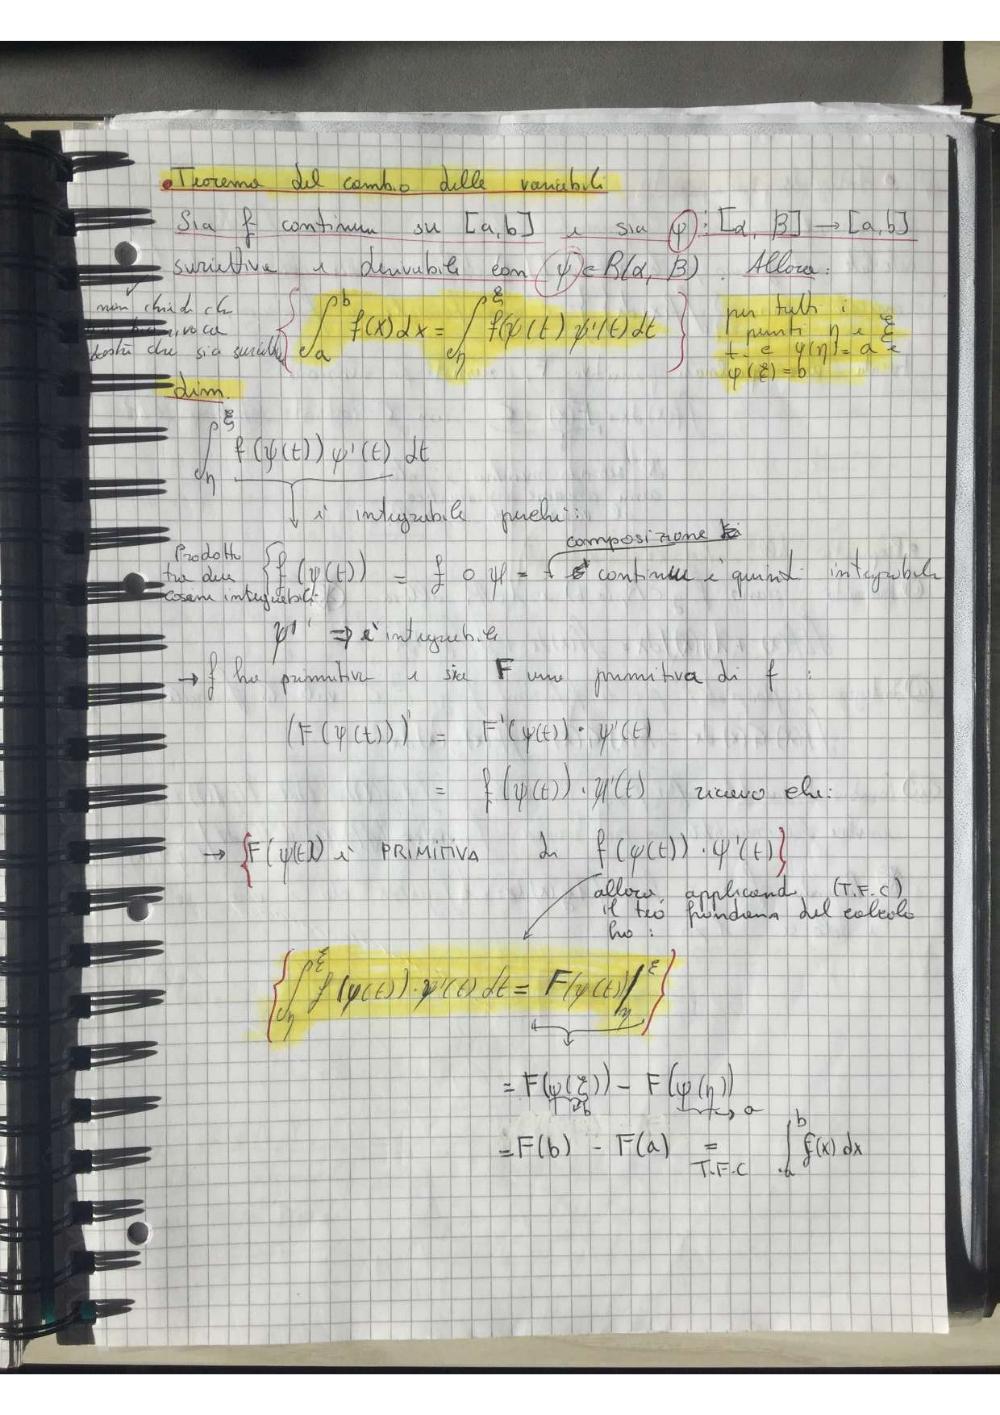 • Teorema del cambio delle variabili
Sia f continua su [a,b] e sia φ: [α, β] → [a,b]
suriettiva e derivabile con φ' ∈ R(α, β). Allora:
non chiede che
basta che sia suriett
∫_a^b f(x)dx = ∫_η^ξ f(φ(t) φ'(t)dt
per tutti i
punti η e ξ
t.c φ(η)=a e
φ(ξ)=b
dim.
∫_η^ξ f(φ(t)) φ'(t) dt
è integrabile perché:
composizione
Prodotto
tra due
cose integrabili
f(φ(t)) = f o φ = continue è quindi integrabile
φ' ⇒ è integrabile
→ f ha primitiva e sia F una primitiva di f :
(F(φ(t)))' = F'(φ(t)) · φ'(t)
= f(φ(t)) · φ'(t) ricavo che:
→ {F(φ(t)) è PRIMITIVA di f(φ(t)) · φ'(t)}
allora applicando (T.F.C)
il teo fondamen del calcolo
ho:
{∫_η^ξ f(φ(t)) · φ'(t) dt = F(φ(t)|_η^ξ}
= F(φ(ξ)) - F(φ(η))
b a
= F(b) - F(a) = ∫_a^b f(x) dx
T.F.C